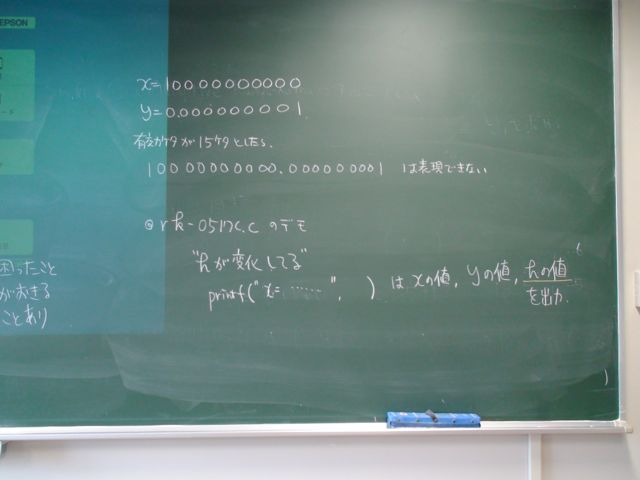 EPSON
x=10000000000
y=0.000000001
有効ケタが15ケタとしたら.
10000000000.000000001 は表現できない
◎rk-0517c.c のデモ
"hが変化してる"
printf("x= ......", ) は xの値, yの値, hの値
を出力.
困ったこと
がおきる
ことあり